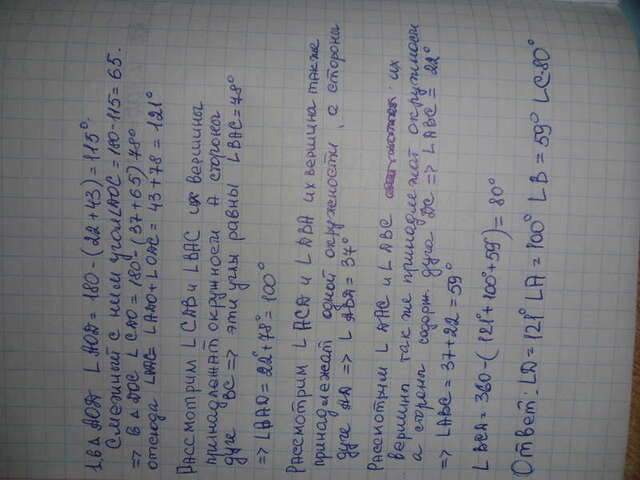 1. В Δ AOД ∠AOД = 180 - (22 + 43) = 115°.
Смежный с ним угол ∠ДOC = 180 - 115 = 65.
=> В Δ ДOC ∠CДO = 180 - (37 + 65) 78°
отсюда = 43 + 78 = 121°
Рассмотрим ∠CДB и ∠BAC их вершины
принадлежат окружности А стороны
дуге BC => эти углы равны ∠BAC = 78°
=> ∠BAД = 22° + 78° = 100°
Рассмотрим ∠ACД и ∠ДBA их вершина также
принадлежат одной окружности, а стороны
дуге AД => ∠ДBA = 37°
Рассмотрим ∠ДAC и ∠ДBC их
вершины так же принадлежат окружности
а стороны содерж. дуга ДC => ∠ДBC = 22°
=> ∠ABC = 37 + 22 = 59°
∠BCД = 360 - (121° + 100° + 59°) = 80°
Ответ: ∠Д = 121° ∠A = 100° ∠B = 59° ∠C = 80°